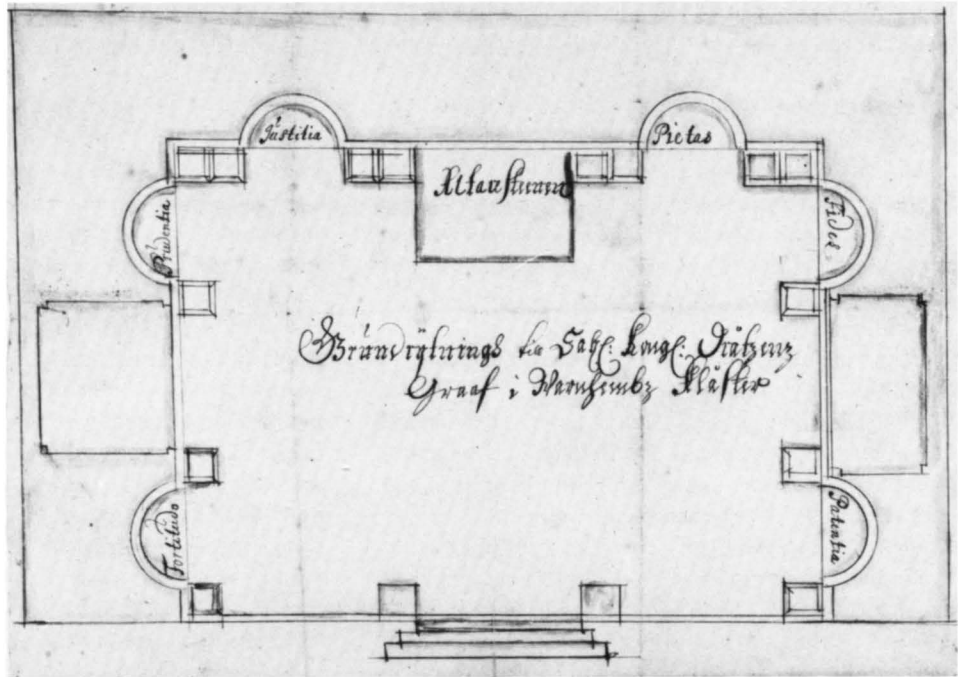 Justitia
Pietas
Altarstenen
Prudentia
Fides
Grundrytnings till Sahl: Kongl:
Graaf i Warnhembz Klöster
Fortitudo
Patentia